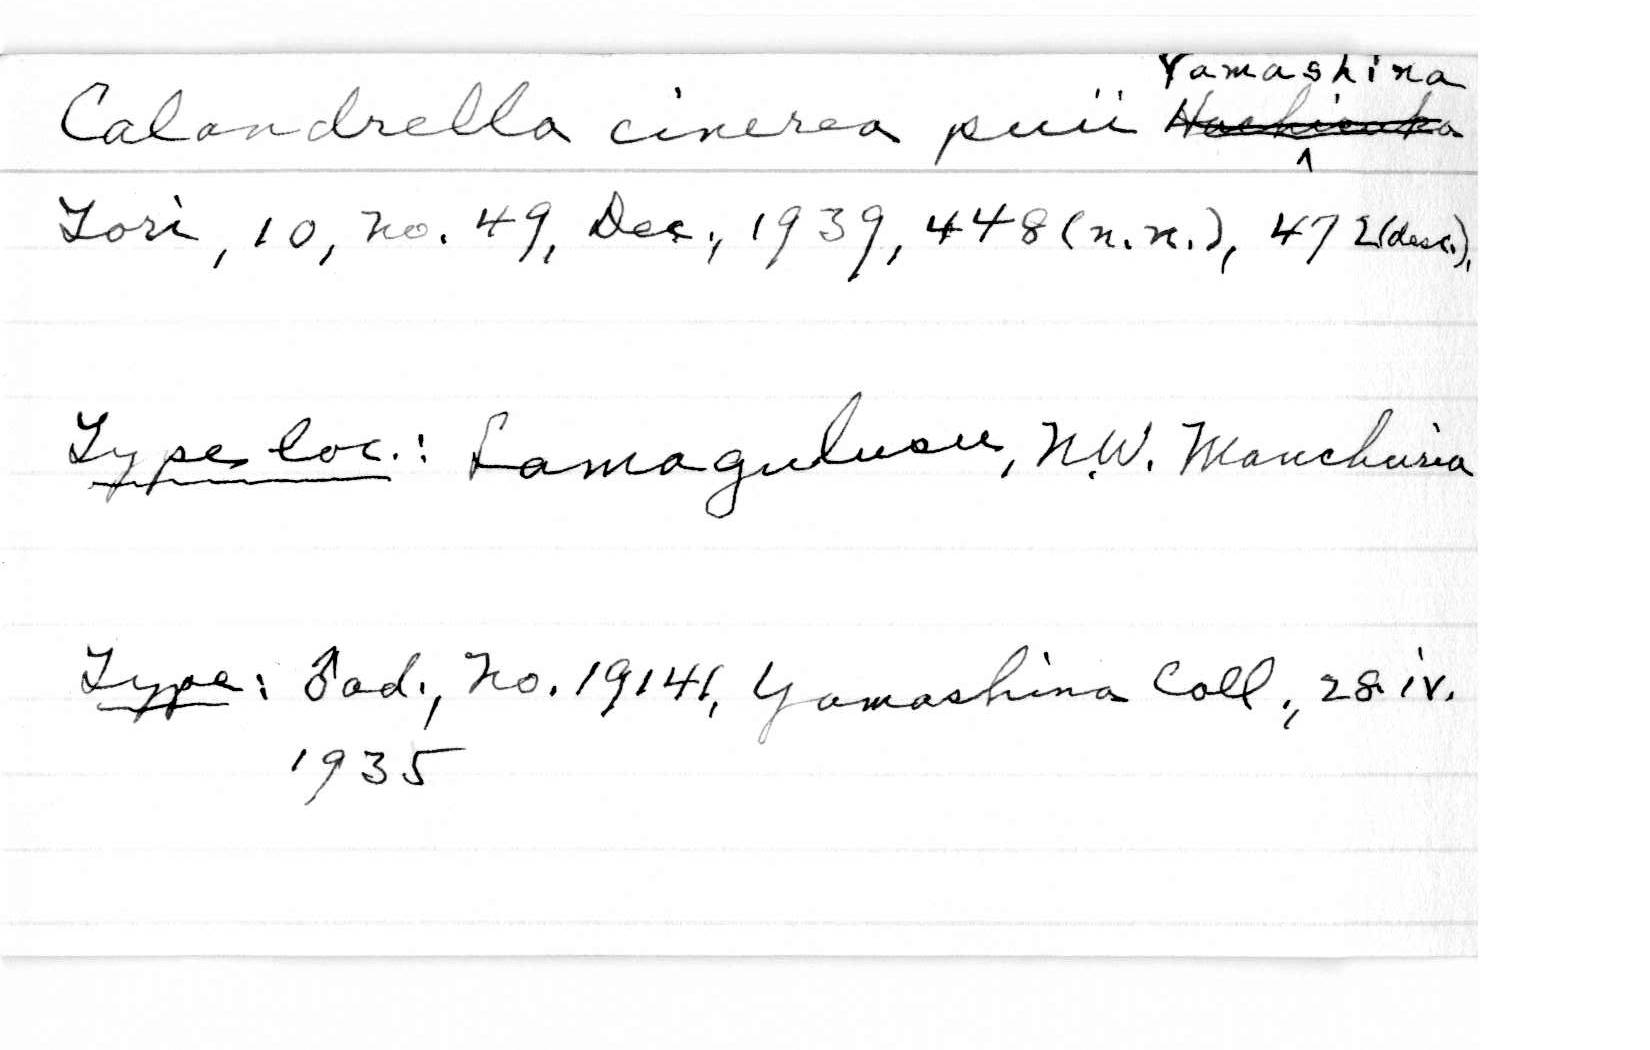 Yamashina
Calandrella cinerea puii Hachisuka
Tori, 10, no. 49, Dec., 1939, 448 (n.n.), 472 (desc.),
Type loc.: Lamagulusu, N.W. Manchuria
Type: ♂ ad., No. 19141, Yamashina Coll., 28.iv.
1935